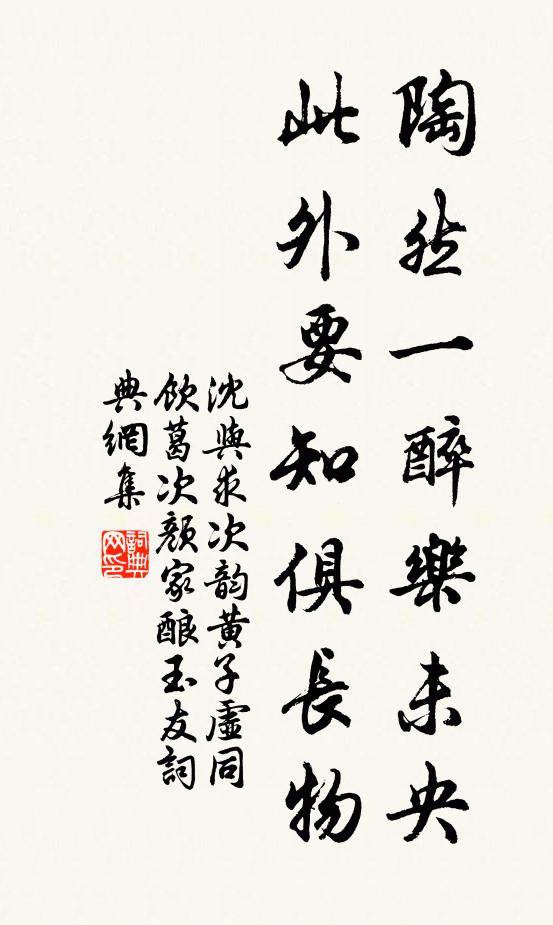 陶然一醉樂未央
此外要知俱長物
沈與求次韵黄子虛同
飲葛次顏家釀玉友詞
典網集
詞典网印